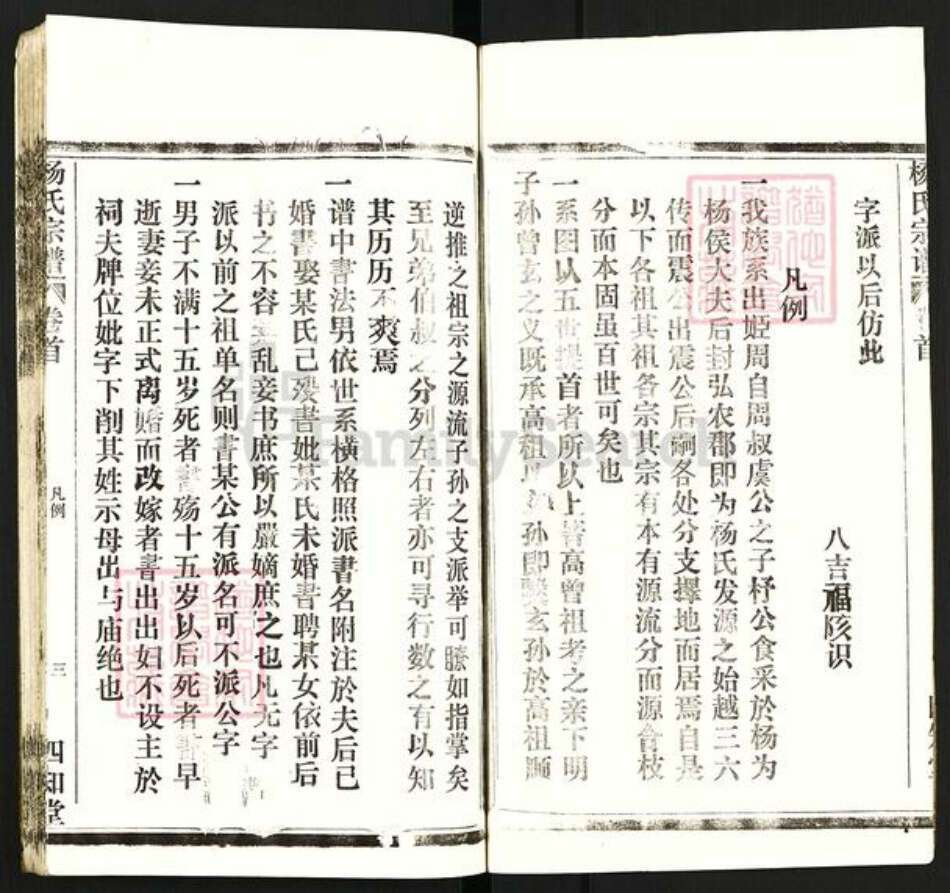 字派以后仿此
八吉福陔识
凡例
一我族系出姬周自周叔虞公之子杼公食采於杨为
杨侯大夫后封弘农郡即为杨氏发源之始越三六
传而震公出震公后嗣各处分支擇地而居焉自是
以下各祖其祖各宗其宗有本有源流分而源合枝
分而本固虽百世可矣也
一系图以五世提首者所以上皆高曾祖考之亲下明
子孙曾玄之义既承高祖 孙即繫玄孙於高祖
逆推之祖宗之源流子孙之支派举可瞭如指掌矣
至兄弟伯叔之分列左右者亦可寻行数之有以知
其历历不爽焉
一谱中書法男依世系横格照派書名附注於夫后已
婚書娶某氏已殁書妣某氏未婚書聘某女依前后
书之不容紊乱妾书庶所以嚴嫡庶之也凡无字
派以前之祖单名则書某公有派名可不派公字
一男子不满十五岁死者書殇十五岁以后死者書早
逝妻妾未正式离婚而改嫁者書出出妇不设主於
祠夫牌位妣字下削其姓示母出与庙绝也
杨氏宗谱 卷首
凡例
三
四知堂
杨氏宗谱
首
FamilySearch